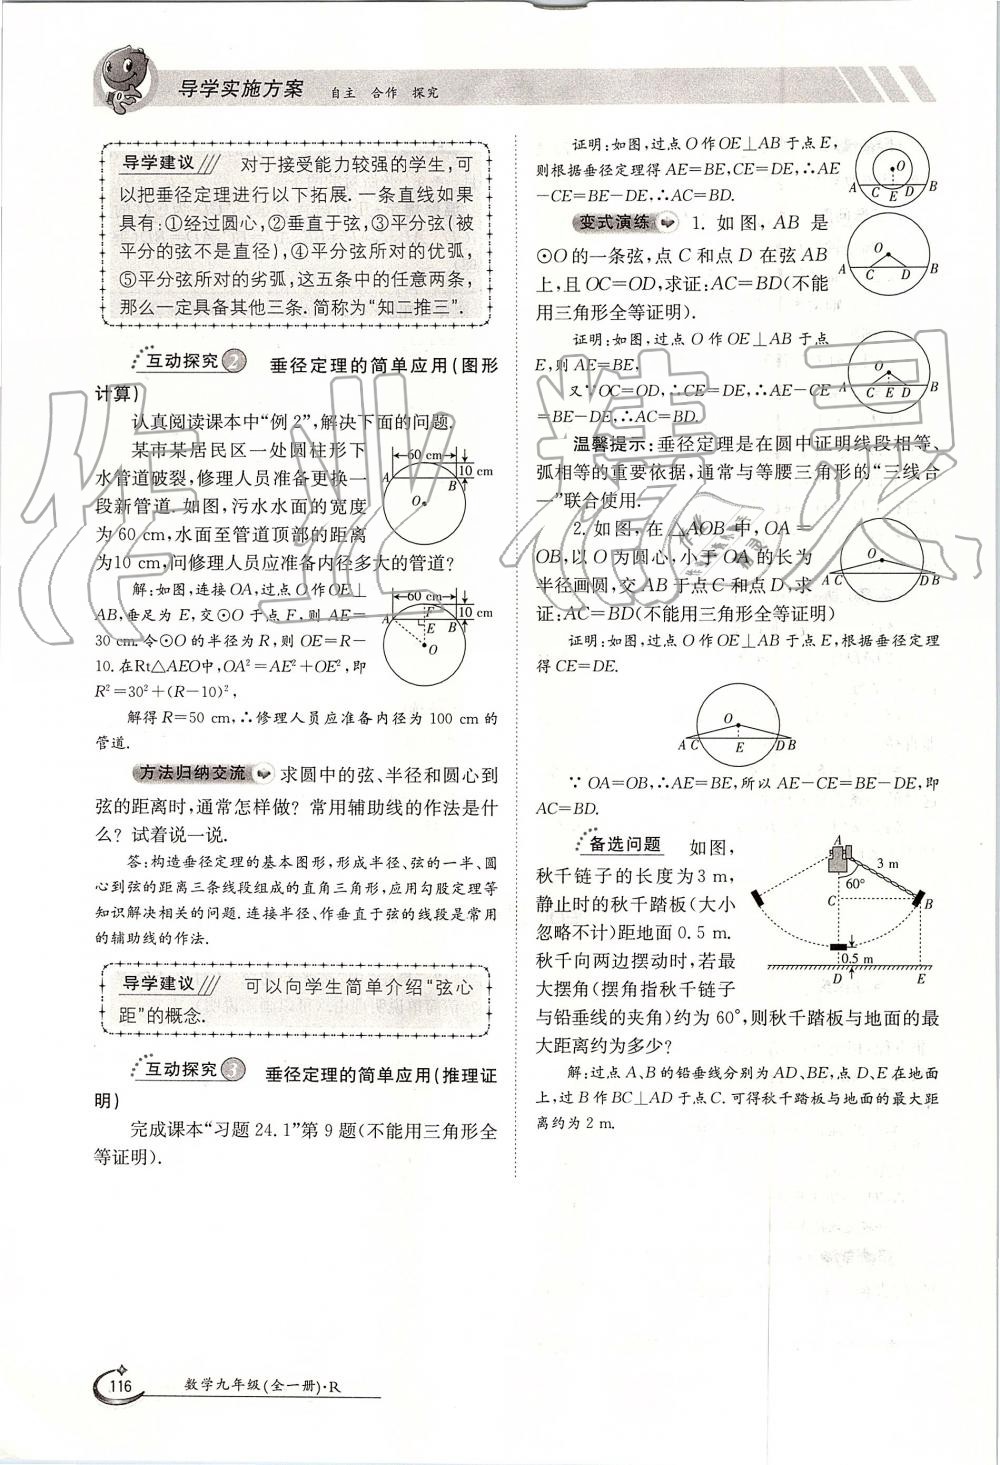 导学实施方案 自主 合作 探究
导学建议 对于接受能力较强的学生,可
以把垂径定理进行以下拓展.一条直线如果
具有:①经过圆心,②垂直于弦,③平分弦(被
平分的弦不是直径),④平分弦所对的优弧,
⑤平分弦所对的劣弧,这五条中的任意两条,
那么一定具备其他三条.简称为“知二推三”.
互动探究 2 垂径定理的简单应用(图形
计算)
认真阅读课本中“例2”,解决下面的问题.
某市某居民区一处圆柱形下
水管道破裂,修理人员准备更换一
段新管道.如图,污水水面的宽度
为60 cm,水面至管道顶部的距离
为10 cm,问修理人员应准备内径多大的管道?
60 cm
10 cm
A B
O
解:如图,连接OA,过点O作OE⊥
AB,垂足为E,交⊙O于点F,则AE=
30 cm.令⊙O的半径为R,则OE=R-
10.在Rt△AEO中,OA²=AE²+OE²,即
R²=30²+(R-10)²,
60 cm
F 10 cm
A E B
O
解得R=50 cm,∴修理人员应准备内径为100 cm的
管道.
方法归纳交流 求圆中的弦、半径和圆心到
弦的距离时,通常怎样做?常用辅助线的作法是什
么?试着说一说.
答:构造垂径定理的基本图形,形成半径、弦的一半、圆
心到弦的距离三条线段组成的直角三角形,应用勾股定理等
知识解决相关的问题.连接半径、作垂直于弦的线段是常用
的辅助线的作法.
导学建议 可以向学生简单介绍“弦心
距”的概念.
互动探究 3 垂径定理的简单应用(推理证
明)
完成课本“习题24.1”第9题(不能用三角形全
等证明).
证明:如图,过点O作OE⊥AB于点E,
则根据垂径定理得AE=BE,CE=DE,∴AE
-CE=BE-DE,∴AC=BD.
O
A C E D B
变式演练 1.如图,AB是
⊙O的一条弦,点C和点D在弦AB
上,且OC=OD,求证:AC=BD(不能
用三角形全等证明).
O
A C D B
证明:如图,过点O作OE⊥AB于点
E,则AE=BE,
又∵OC=OD,∴CE=DE,∴AE-CE
=BE-DE,∴AC=BD.
O
A C E D B
温馨提示:垂径定理是在圆中证明线段相等、
弧相等的重要依据,通常与等腰三角形的“三线合
一”联合使用.
2.如图,在△AOB中,OA=
OB,以O为圆心,小于OA的长为
半径画圆,交AB于点C和点D,求
证:AC=BD(不能用三角形全等证明)
O
A C D B
证明:如图,过点O作OE⊥AB于点E,根据垂径定理
得CE=DE.
O
A C E D B
∵OA=OB,∴AE=BE,所以AE-CE=BE-DE,即
AC=BD.
备选问题 如图,
秋千链子的长度为3 m,
静止时的秋千踏板(大小
忽略不计)距地面0.5 m.
秋千向两边摆动时,若最
大摆角(摆角指秋千链子
与铅垂线的夹角)约为60°,则秋千踏板与地面的最
大距离约为多少?
A
3 m
60°
C B
0.5 m
D E
解:过点A、B的铅垂线分别为AD、BE,点D、E在地面
上,过B作BC⊥AD于点C.可得秋千踏板与地面的最大距
离约为2 m.
116 数学九年级(全一册)·R
作业精灵